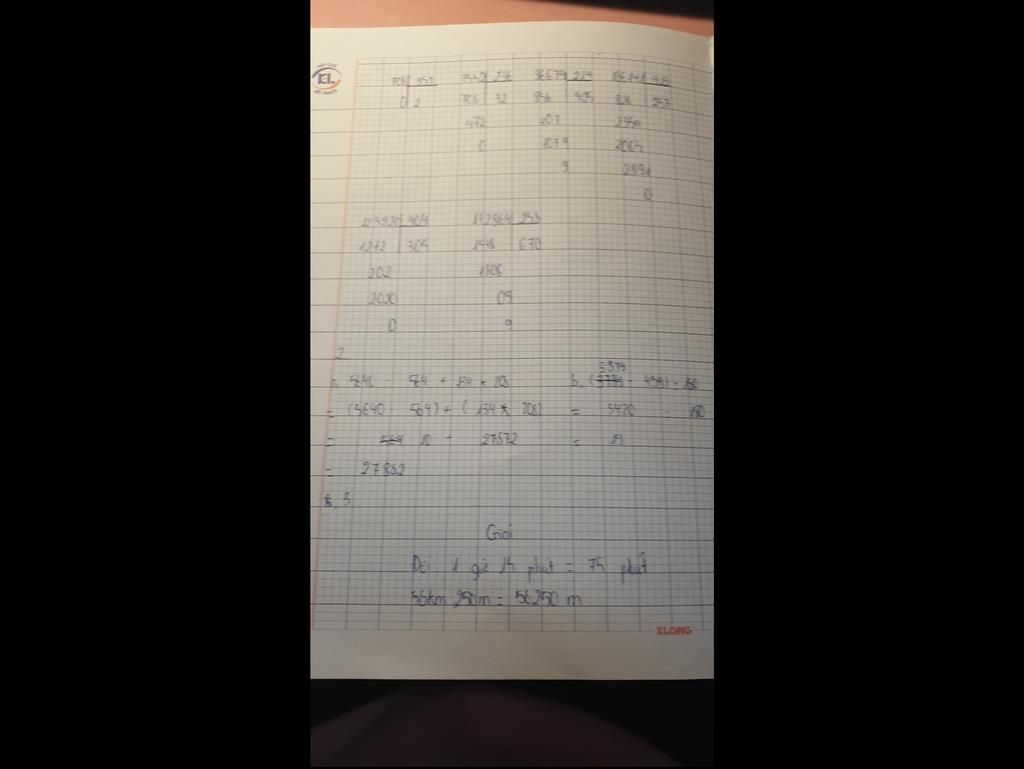 KL
708 354 7552 236 86679 214 106141 413
0 2 708 32 856 405 826 257
472 107 2354
0 1079 2065
9 2891
0
123220 404 172869 258
1212 305 1548 670
202 1806
2020 09
0 9
2
5640 564 + 134 × 208 b, (3979 - 459) : 180
= (5640 : 564) + (134 × 208) = 3420 : 180
= 10 + 27872 = 19
= 27882
3
Giải
Đổi 1 giờ 15 phút = 75 phút
56km 250m = 56250 m
KLONG